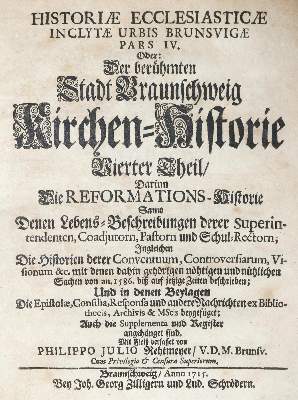 HISTORIÆ ECCLESIASTICÆ
INCLYTÆ URBIS BRUNSVIGÆ
PARS IV.
Oder:
Der berühmten
Stadt Braunschweig
Kirchen-Historie
Vierter Theil/
Darinn
Die REFORMATIONS-Historie
Samt
Denen Lebens-Beschreibungen derer Superin-
tendenten, Coadjutorn, Pastorn und Schul-Rectorn;
Ingleichen
Die Historien derer Conventuum, Controversiarum, Vi-
sionum &c. mit denen dahin gehörigen nöhtigen und nützlichen
Sachen von an. 1586. biß auf jetzige Zeiten beschrieben;
Und in denen Beylagen
Die Epistolæ, Consilia, Responsa und andere Nachrichten ex Biblio-
thecis, Archivis & MSCis beygefüget;
Auch die Supplementa und Register
angehänget sind.
Mit Fleiß verfasset von
PHILIPPO JULIO Rehtmeyer/ V.D.M. Brunsv.
Cum Privilegio & Censura Superiorum.
Braunschweig/ Anno 1715.
Bey Joh. Georg Zilligern und Lud. Schrödern.